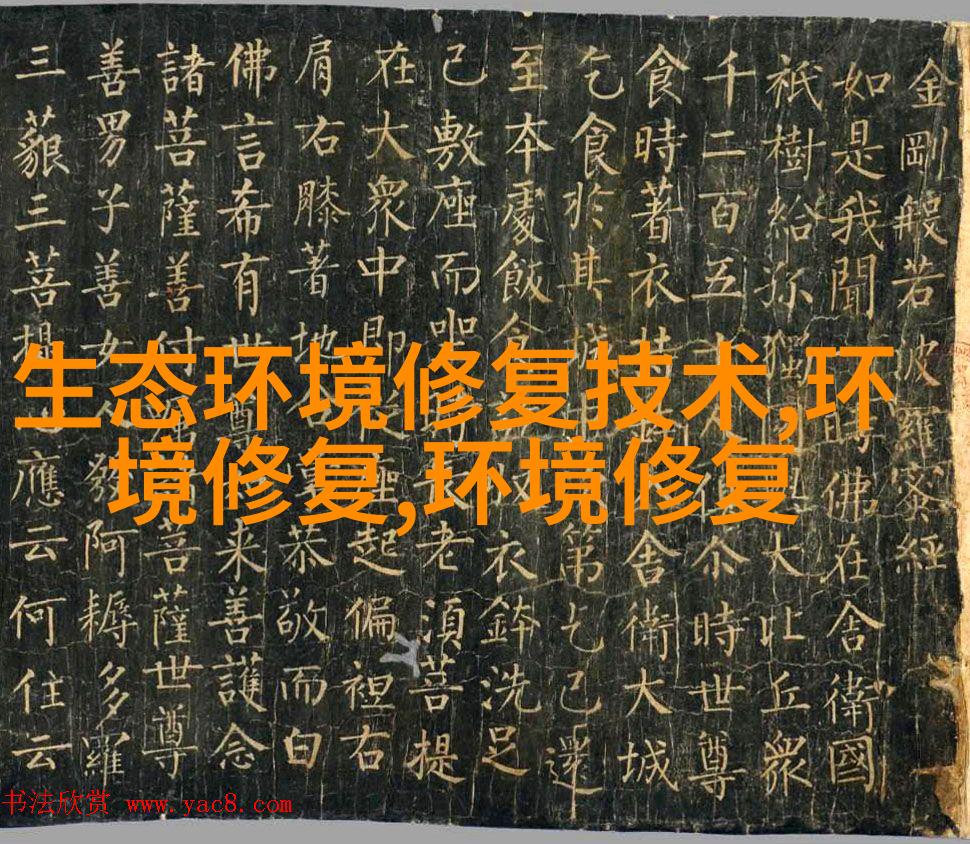 金剛般若波羅蜜經
如是我聞時佛在舍衛國
祇樹給孫獨大比丘衆
千二百五人俱尒時世尊
食時著衣持舍衛大城
乞食於其城中第乞已還
至本處飯食收衣鉢洗足
已敷座而坐長老須菩提
在大衆中即從座起偏袒右
肩右膝著地恭敬而白
佛言希有世尊来善護念
諸菩薩善付菩薩世尊
善男子善女發阿耨多羅
三藐三菩提應云何住云
生态环境修复技术,环
境修复,环境修复
书法欣赏 www.yac8.com